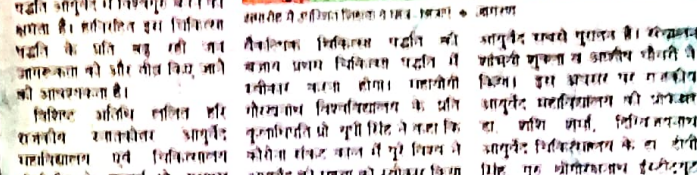 पद्धति आयुर्वेद में विश्वगुरु बनने की
क्षमता है। हानिरहित इस चिकित्सा
पद्धति के प्रति बढ़ रही जन
जागरूकता को और तीव्र किए जाने
की आवश्यकता है।
विशिष्ट अतिथि ललित हरि
राजकीय स्नातकोत्तर आयुर्वेद
महाविद्यालय एवं चिकित्सालय
समारोह में उपस्थित • जागरण
वैकल्पिक चिकित्सा पद्धति की
बजाय प्रथम चिकित्सा पद्धति में
स्वीकार करना होगा। महायोगी
गोरखनाथ विश्वविद्यालय के प्रति
कुलाधिपति प्रो यूपी सिंह ने कहा कि
कोरोना संकट काल में पूरे विश्व ने
आयुर्वेद की को स्वीकार किया
आयुर्वेद सबसे पुरातन है।
शुक्ला व ने
किया। इस अवसर पर राजकीय
आयुर्वेद महाविद्यालय की
डा. शशि शर्मा, दिग्विजयनाथ
आयुर्वेद चिकित्सालय के डा डीपी
सिंह गुरु गोरक्षनाथ इंस्टीट्यूट